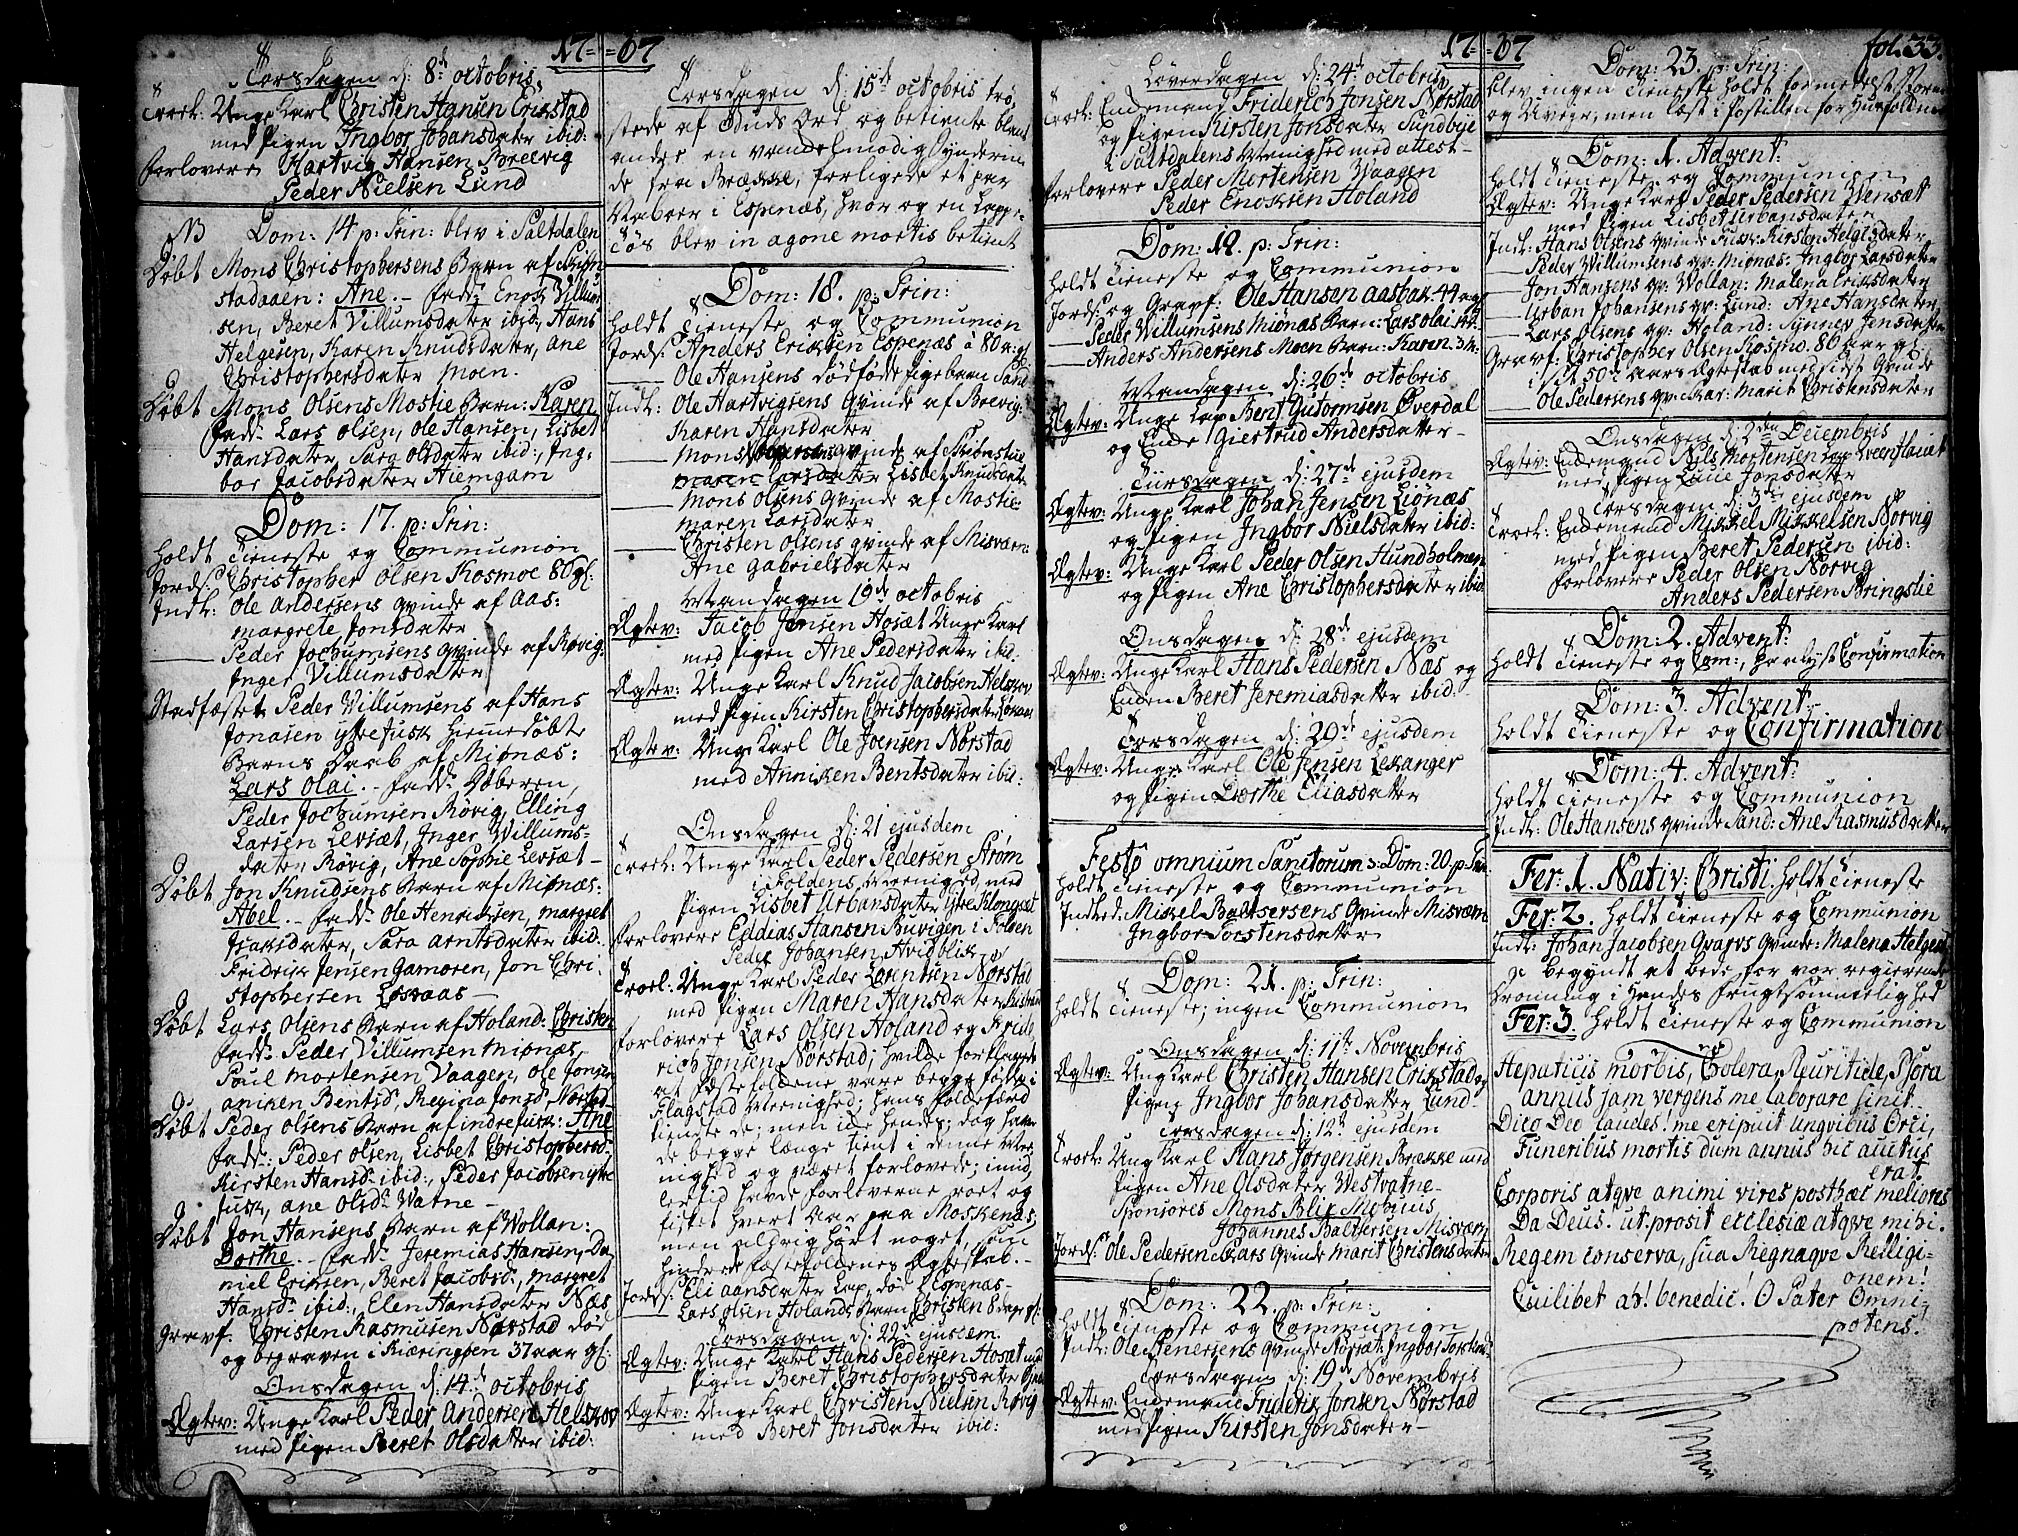 17=67
Torsdagen d: 8de octobris
Troel: Unge Karl Christen Hansen Erikstad
med Pigen Ingbor Johansdater ibid:
Forlovere Hartvig Hansen Brelvig
Peder Nielsen Lund
NB Dom: 14 p: Trin: blev i Saltdalen
Døbt Mons Christophersens Barn af
stadaaen: Ane. - fadd: Enok Villum
sen, Beret Villumsdater ibid:, Hans
Helgesen, Karen Knudsdater, Ane
Christophersdater Moen.
Døbt Mons Olsens Mostie Barn: Karen
fadd: Lars Olsen, Ole Hansen, Lisbet
Hansdater, Sara Olsdater ibid:, Ing-
bor Jacobsdater Hiemgam
Dom: 17. p: Trin:
holdt Tieneste og Communion
Jords: Christopher Olsen Kosmoe 80 gl:
Indl: Ole Andersens Qvinde af Aas:
Margrete Jonsdater
Peder Jochumsens Qvinde af Røvig:
Inger Villumsdater
Stadfæstet Peder Villumsens af Hans
Jonasen ytrefusk hiemmedøbte
Barns Daab af Miønæs:
Lars Olai. - fadd:
Peder Jochumsen Røvig, Elling
Larsen Levsæt, Inger Willums-
dater Røvig, Ane Sophie Levsæt -
Døbt Jon Knudsens Barn af Miønæs:
Abel. - fadd: Ole Henriksen, Margret
Isaksdater, Sara Arntsdater ibid:
Fridrik Jensen Gamoren, Jon Chri-
stophersen
Døbt Lars Olsens Barn af Holand: Christen
fadd: Peder Villumsen Miønæs,
Poul Mortensen Vaagen, Ole Jonsen
Aniken Bentsd, Regina Jonsd, Nørstad
Døbt Peder Olsens Barn af indrefusk: Ane
fadd: Peder Olsen, Lisbet Christophersd-
Kirsten Hansdr ibid:, Peder Jacobsen ytre
fusk, Ane Olsdr Vatne -
Døbt Jon Hansens Barn af Wollan:
Dorthe. - fadd: Jeremias Hansen, Da-
niel Eriksen, Beret Jacobsd:, Margret
Hansdr ibid:, Elen Hansdater Næs
Gravf. Christen Rasmusen Nørstad død
og begraven i Kiæringøen 37 aar gl:
Onsdagen d: 14de octobris
Ægtev: Unge Karl Peder Andersen Helskov
med Pigen Beret Olsdatter ibid:
Torsdagen d: 15de octobris trø-
stede af Guds Ord og betiente blant
andre en vandelmodig Synderin-
de fra Brække, forligede et par
Naboer i Espenæs, hvor og en Lappe-
Tøs blev in agone mortis betient
Dom: 18. p: Trin:
holdt Tieneste og Communion
Jords: Anders Eriksen Espenæs a 80 a: gl
Ole Hansens dødfødde Pigebarn Sand
Indl: Ole Hartvigsens Qvinde af Brevig:
Karen Hansdater
Mons qvinde af
Maren Larsdater Lisbet Knudsdater
Mons Olsens Qvinde af Mostie:
Maren Larsdater
Christen Olsens Qvinde af Misværn:
Ane Gabrielsdater
Mandagen 19de octobris
Ægtev: Jacob Jensen Hosæt Unge Karl
med Pigen Ane Pedersdater ibid:
Ægtev: Unge Karl Knud Jacobsen Helskov
med Pigen Kirsten Christophersdater
Ægtev: Unge Karl Ole Joensen Nørstad
med Anniken Bentsdater ibid:
Onsdagen d: 21 ejusdem
Troel: Unge Karl Peder Pedersen Strøm
i Foldens Meenighed med
Pigen Lisbet Urbansdater ytre Klongset
forlovere Eddias Hansen Buvigen i Folden
Peder Johansen Hvidblik
Troel: Unge Karl Peder Lorentsen Nørstad
med Pigen Maren Hansdater
forlovere Lars Olsen Holand og Fride-
rich Jonsen Nørstad; hvilke forklarede
at Fæstefolkene vare begge fødde i
Flagstad Menighed; hans Folkefærd
kiendte de; men icke hendes; dog havde
de begge længe tient i denne Me-
nighed og været forlovede; imid-
lertid havde forloverne roet og
fisket hvert Aar paa Moskenæs;
men aldrig hørt noget, som
hindrede Fæstefolkenes Ægteskab. -
Jords: Eli Aansdater Lap, død i Espenæs -
Lars Olsen Holands Barn Christen 8 dage gl:
Torsdagen d: 22de ejusdem
Ægtev: Unge Karl Hans Pedersen Hosæt med
Pigen Beret Christophersdater
Ægtev: Unge Karl Christen Nielsen Røvig
med Beret Jonsdater ibid:
17=67
Løverdagen d: 24de octobris
Troel: Enkemand Friderich Jonsen Nørstad
og Pigen Kirsten Jonsdater Sundbye
i Saltdalens Menighed med attest -
forlovere Peder Mortensen Waagen
Peder Enoksen Holand
Dom: 19. p: Trin:
holdt Tieneste og Communion
Jords: og Gravf: Ole Hansen Aasbak: 44 a gl
Peder Willumsens Miønæs Barn: Lars Olai
Anders Andersens Moen Barn: Karen
Mandagen d: 26de octobris
Ægtev: Unge Lap Bent Gutormsen Øverdal
og Enke Giertrud Andersdatter -
Tiirsdagen d: 27de ejusdem
Ægtev: Unge Karl Johan Jensen Liønæs
og Pigen Ingbor Nielsdater ibid:
Ægtev: Unge Karl Peder Olsen Hundholmen
og Pigen Ane Christophersdater ibid
Onsdagen d: 28de ejusdem
Ægtev: Unge Karl Hans Pedersen Næs og
Enken Beret Jeremiasdatter ibid:
Torsdagen d: 29de ejusdem
Ægtev: Unge Karl Ole Jensen Lekanger
og Pigen Dorthe Eliasdatter
Festo omnium Sanctorum s: Dom: 20. p: Trin
holdt Tieneste og Communion
Indled: Mickel Baltsersens Qvinde Misværn
Ingbor Torstensdater
Dom: 21. p: Trin:
holdt Tieneste; ingen Communion
Onsdagen d: 11te Novembris
Ægtev: Ung Karl Christen Hansen Erikstad og
Pigen Ingbor Johansdater Lund -
Torsdagen d: 12te ejusdem
Troel: Ung Karl Hans Jørgensen Brække med
Pigen Ane Olsdater Westvatne -
Sponsores Mons Blix
Johannes Baltsersen Misværn
Jords: Ole Pedersen Kars Qvinde Marit Christensdater
Dom: 22. p: Trin:
holdt Tieneste og Communion
Indl: Ole Qvinde Nørsæt: Ingbor
Torsdagen d: 19de Novembris
Ægtev: Enkemand Friderik Jonsen Nørstad
med Pigen Kirsten Jonsdater -
fol. 33.
Dom: 23. p: Trin:
blev ingen Tieneste holdt formedelst Storm
og Uveyr; men læst i Postillen for Huusfolkene
Dom: 1. Advent:
holdt Tieneste og Communion
Ægtev: Unge Karl Peder Pedersen Wensæt
med Pigen Lisbet Urbansdater
Indl: Hans Olsens Qvinde Fusk: Kirsten Helgesdater
Peder Willumsens qv: Miønæs: Ingbor Larsdater
Jon Hansens qv: Wollan: Malena Eriksdater
Urban Johansens qv: Lund: Ane Hansdater
Lars Olsens qv: Holand: Synnev Jensdater
Gravf: Christopher Olsen Kosmo. 80 aar gl:
i sit 50de aars Ægteskab med sidst Qvinde
Ole Pedersens qv: Kar: Marit Christensdater
Onsdagen d: 2den Decembris
Ægtev: Enkemand Nils Mortensen Lap
med Pigen Jonsdater
Torsdagen d: 3die ejusdem
Troel: Enkemand Mikkel Mikkelsen Nørvig
med Pigen Beret Pedersen ibid:
Forlovere Peder Olsen Nørvig
Anders Pedersen Bringslie
Dom: 2. Advent:
holdt Tieneste og Com:, Confirmation
Dom: 3. Advent:
holdt Tieneste og Confirmation
Dom: 4. Advent:
holdt Tieneste og Communion
Indl: Ole Hansens Qvinde Sand: Ane Rasmusdatter
Fer: 1. Nativ: Christi. holdt Tieneste
Fer: 2. holdt Tieneste og Communion
Indl: Johan Jacobsen Qvarvs Qvinde: Malena Helgesd
begyndt at bede for vor regierende
Dronning i Hendes frugtsommelighed
Fer: 3. holdt Tieneste og Communion
Hepaticis morbis, Colera, Pleuritide, Psora
annus jam vergens me laborare sinit.
Dico Deo laudes! me eripuit ungvibus Orci,
Funeribus mortis dum annus hic auctus
erat
Corporis atqve animi vires posthac meliores
Da Deus! ut prosit ecclesiæ atqve mihi.
Regem conserva, sua Regnaqve Religi-
onem!
Cuilibet ah! benedic! O Pater Omni-
potens!